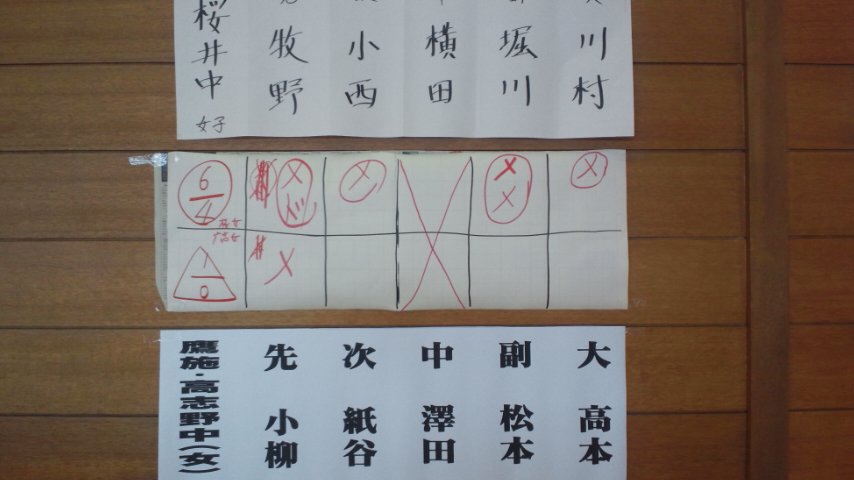 川村
堀川
横田
小西
牧野
桜井中
女子
6
4
X
ド
X
X
X
X
1
0
X
大 高本
副 松本
中 澤田
次 紙谷
先 小柳
鷹施・高志野中(女)